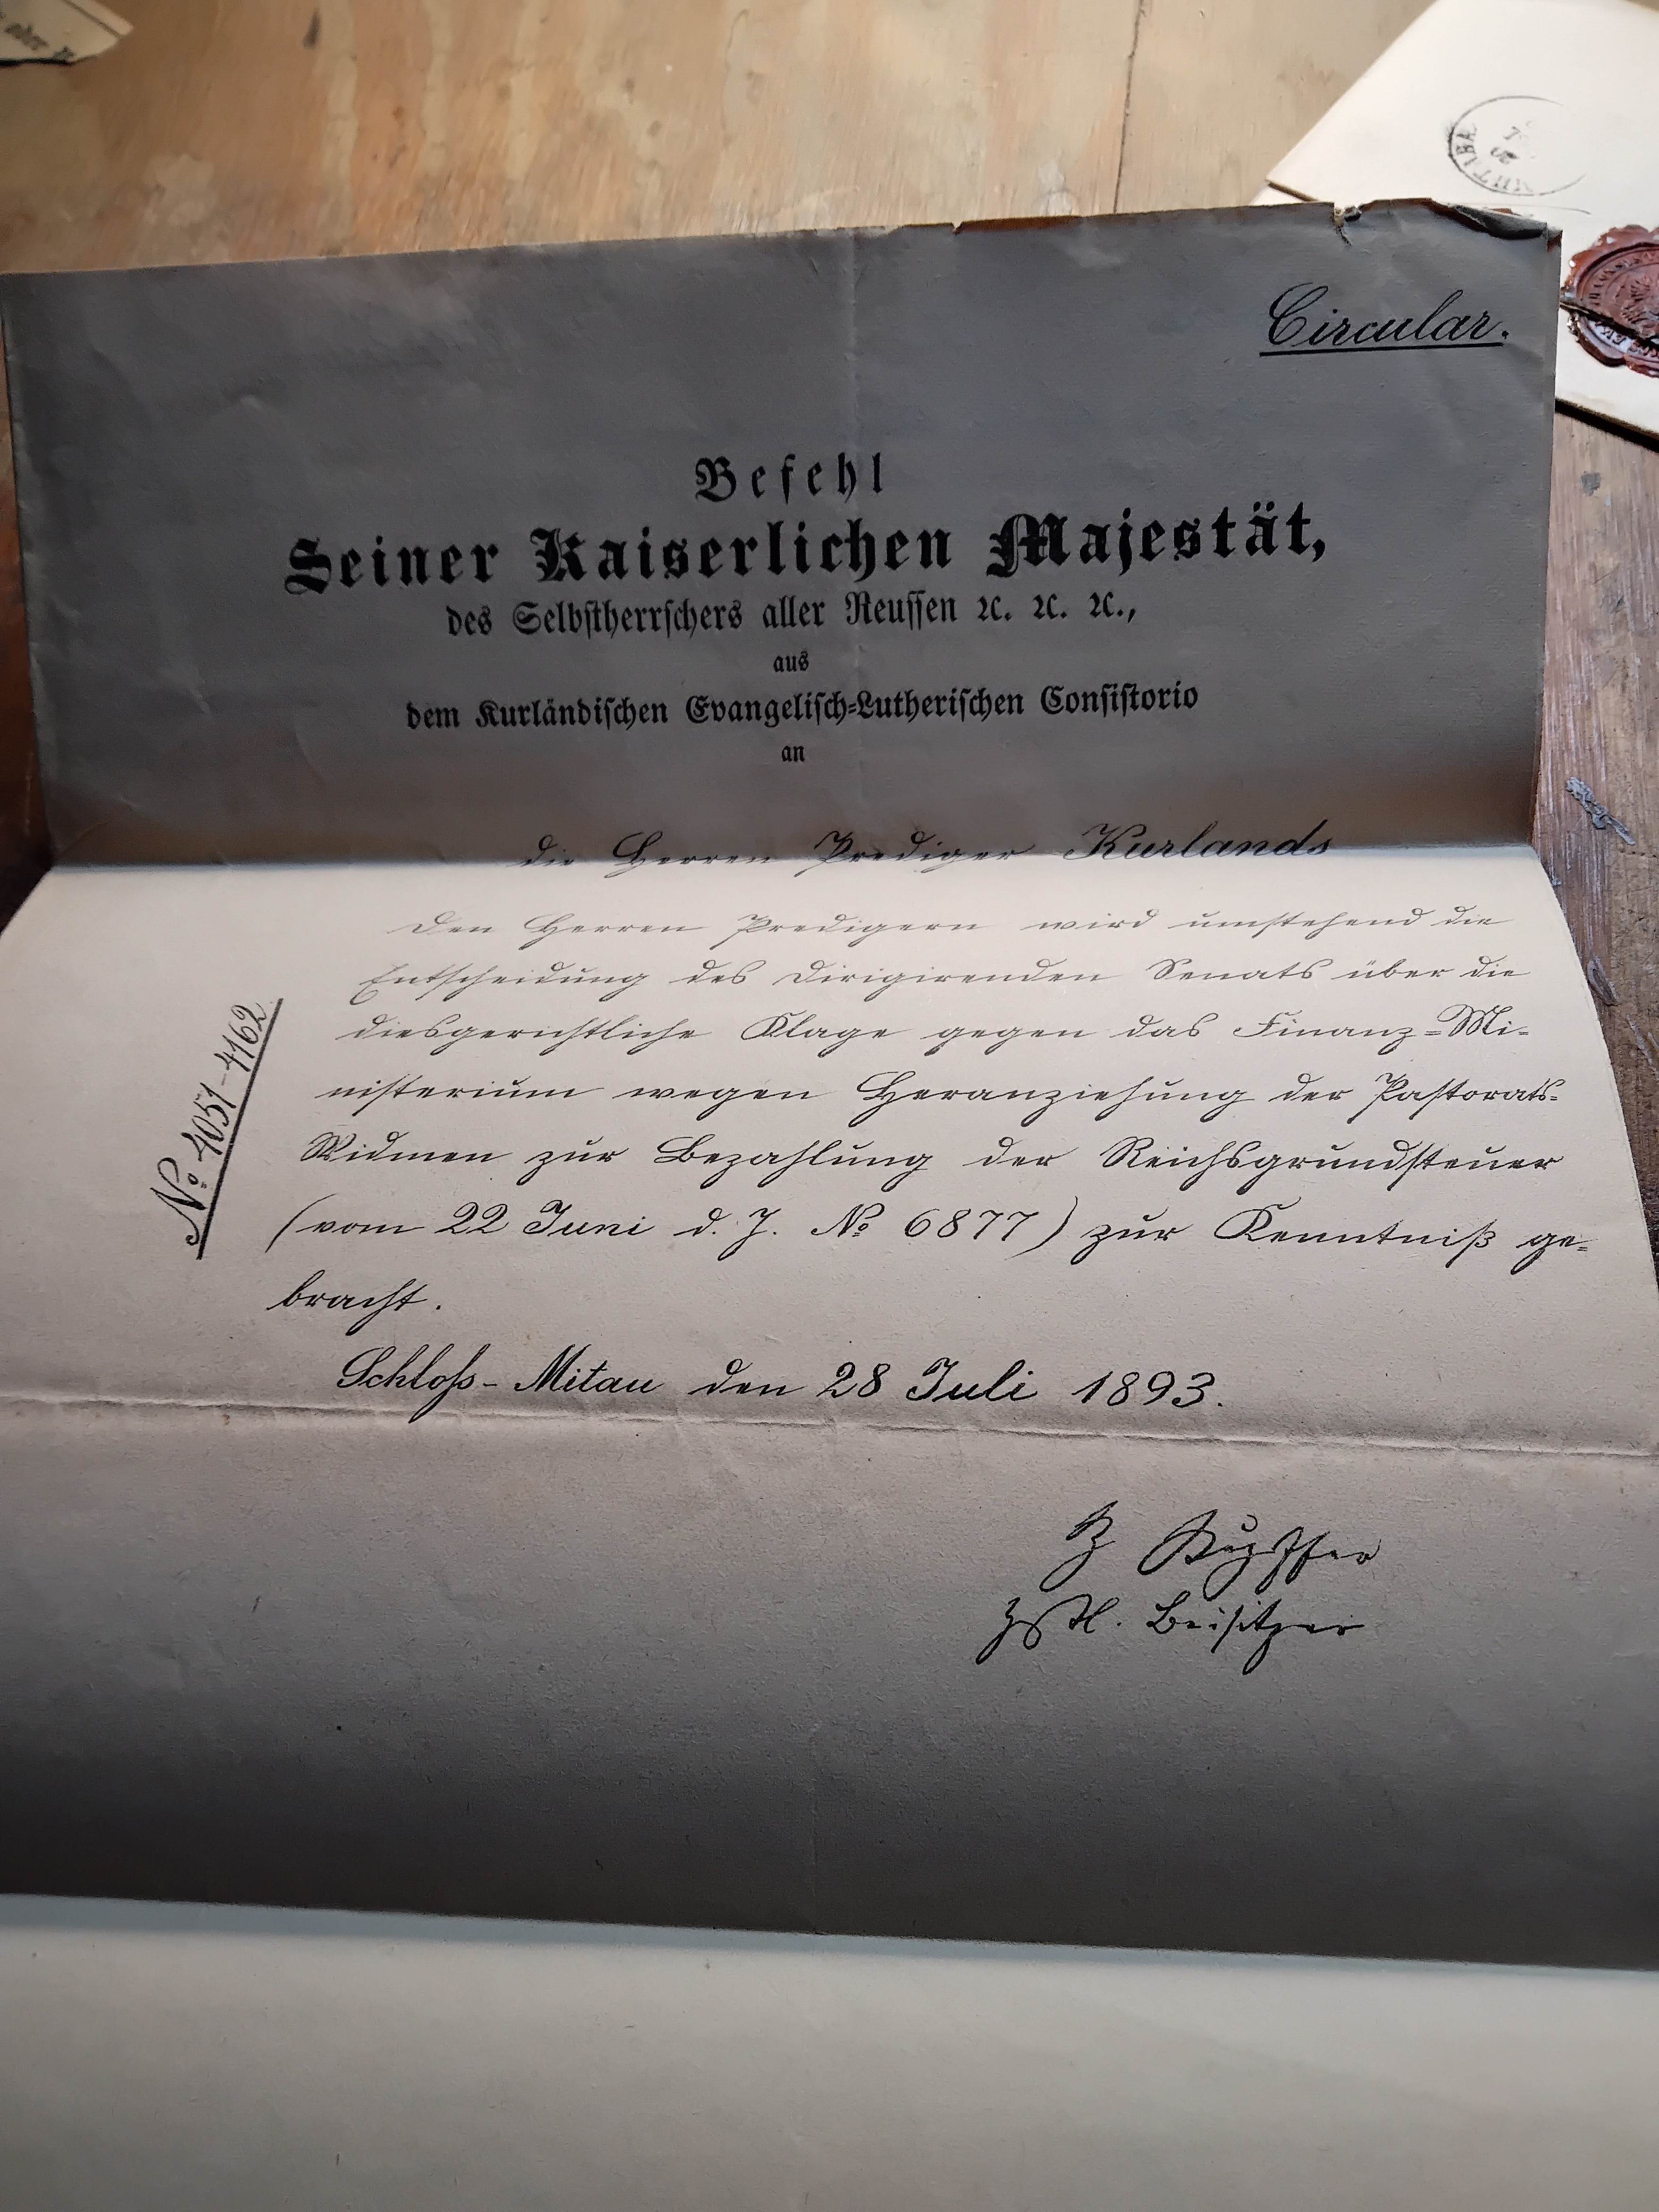 Circular.
Befehl
Seiner Kaiserlichen Majestät,
des Selbstherrschers aller Reussen ꝛc. ꝛc. ꝛc.,
aus
dem Kurländischen Evangelisch-Lutherischen Consistorio
an
die Herren Prediger Kurlands
Den Herren Predigern wird umstehend die
Entscheidung des Dirigirenden Senats über die
diesgerichtliche Klage gegen das Finanz-Mi-
nisterium wegen Heranziehung der Pastorats-
Widmen zur Bezahlung der Reichsgrundsteuer
(vom 22 Juni d. J. № 6877) zur Kenntniß ge-
bracht.
№ 4051-4162
Schloss-Mitau den 28 Juli 1893.
Kupffer
Beisitzer